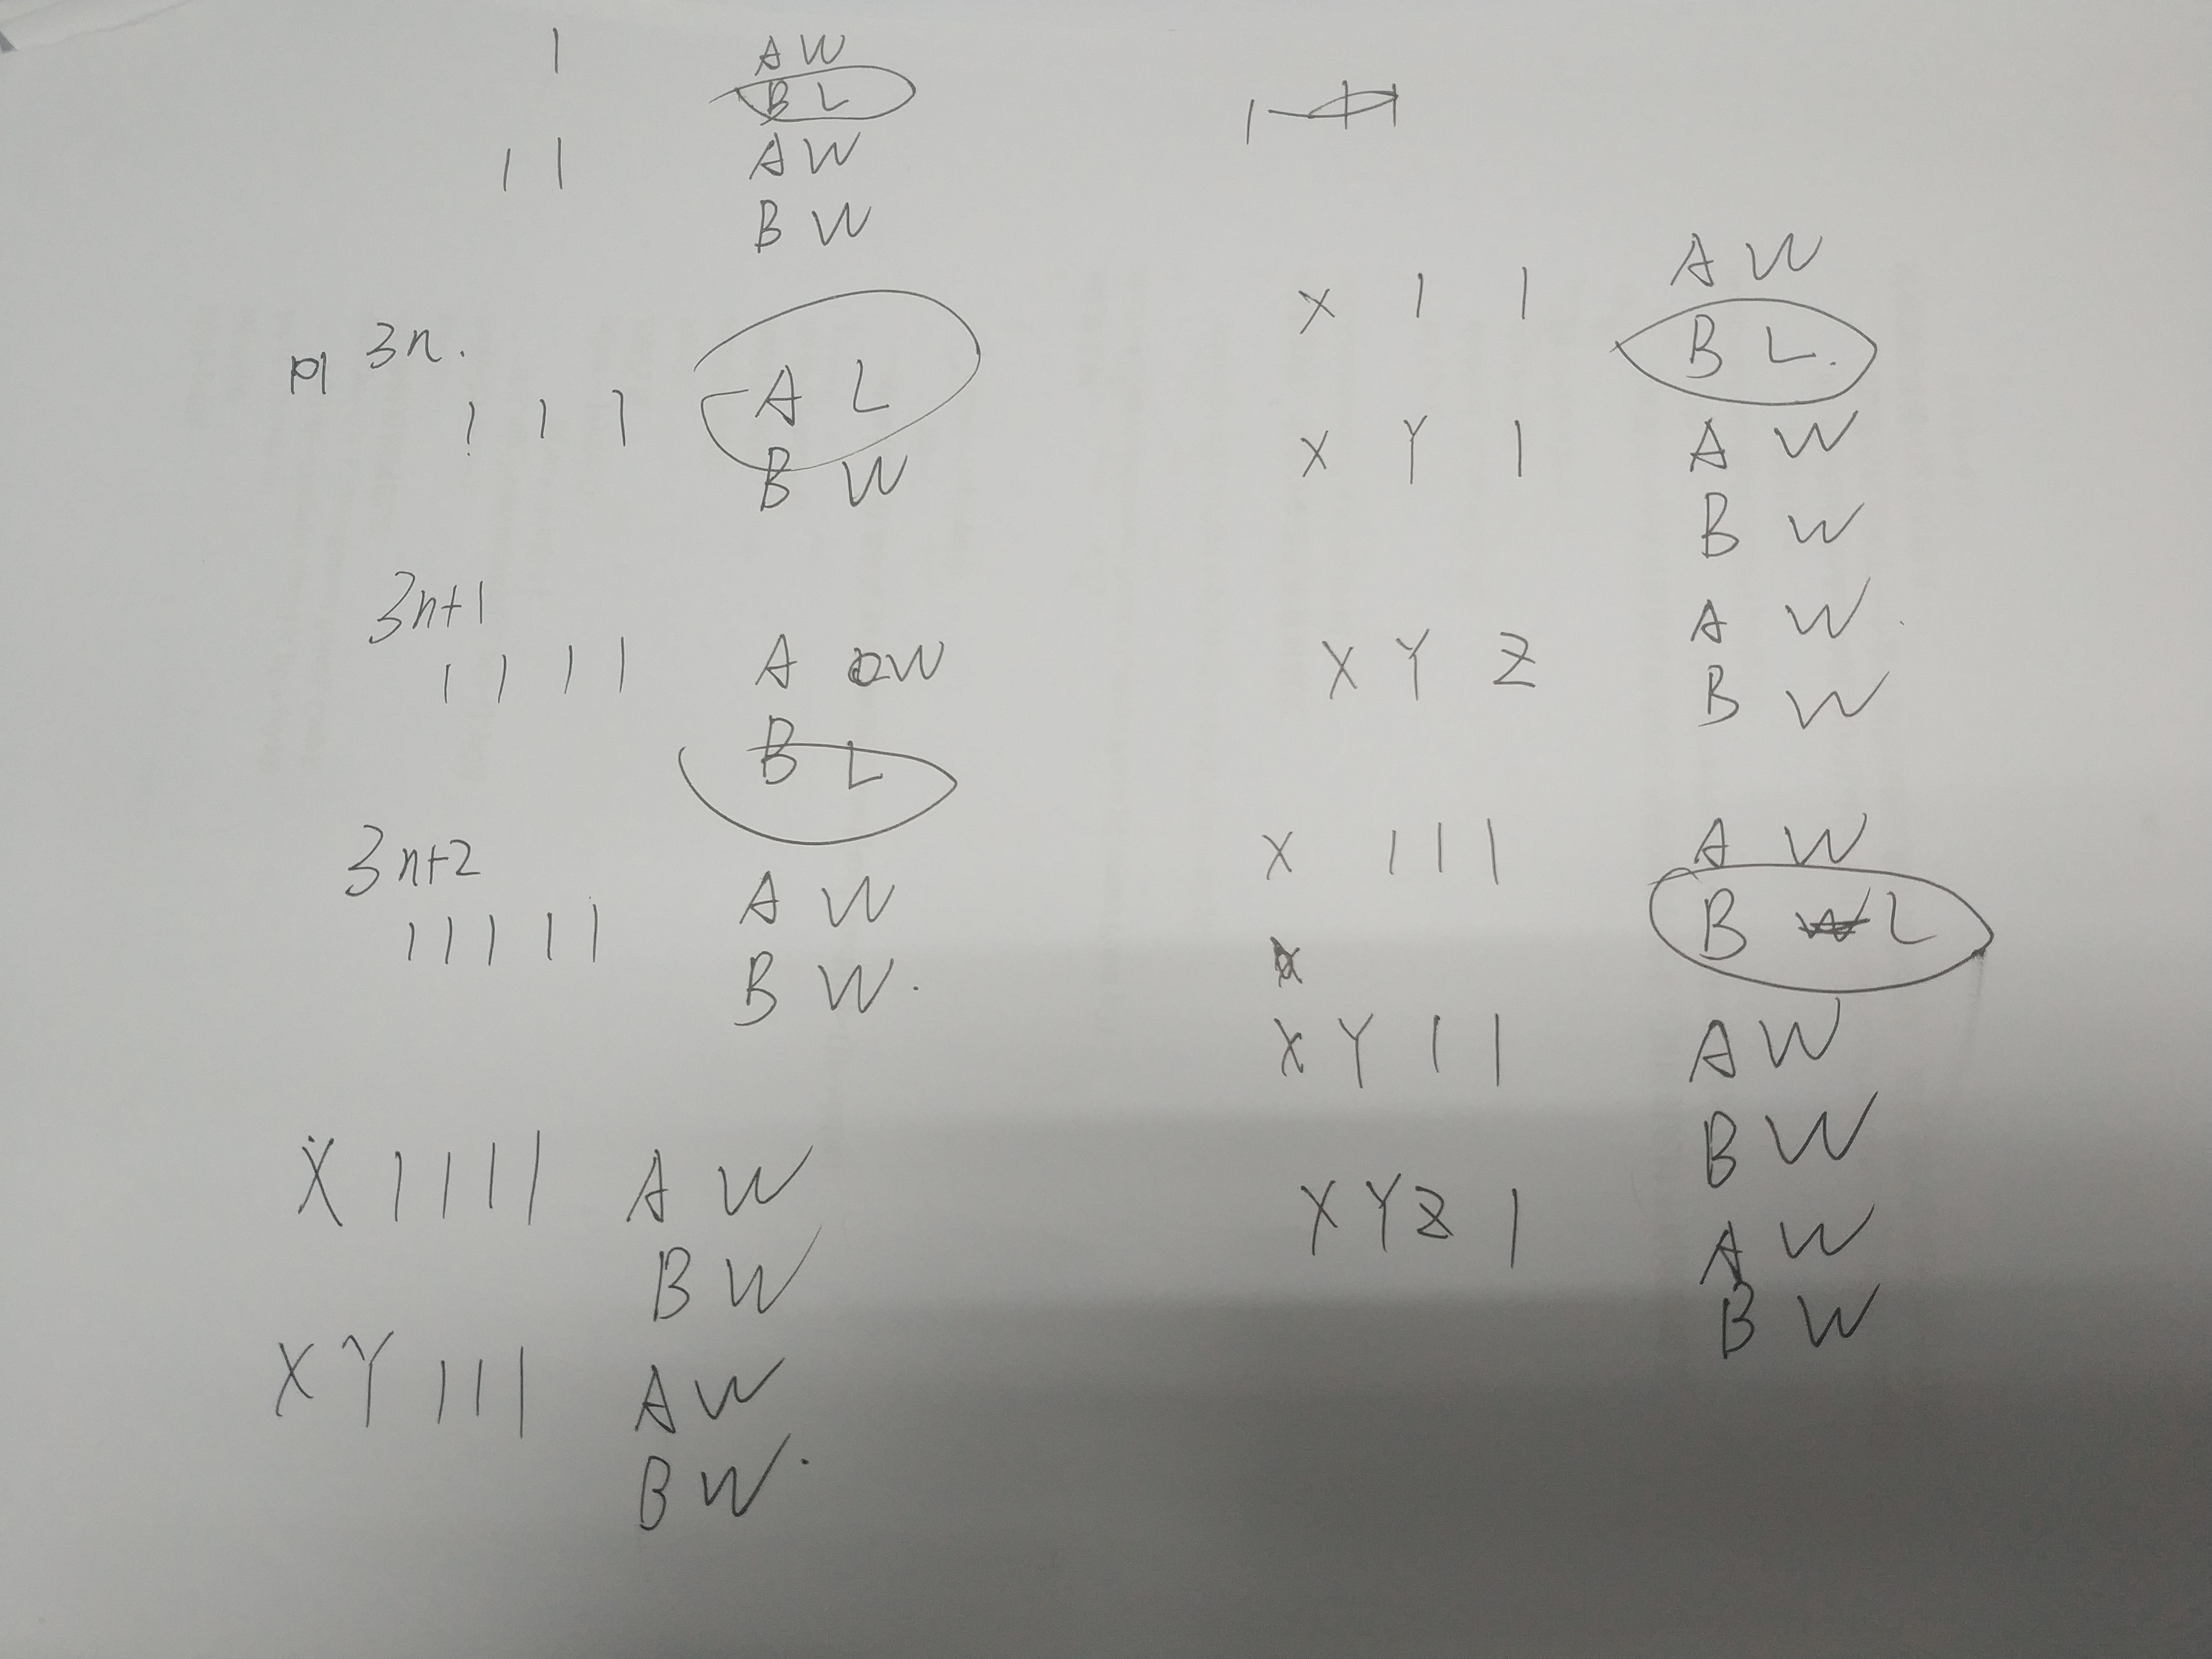 1 A W
B L
1 1 A W
B W
3n.
1 1 1 A L
B W
3n+1
1 1 1 1 A W
B L
3n+2
1 1 1 1 1 A W
B W.
X 1 1 1 1 A W
B W
X Y 1 1 1 A W
B W.
A W
X 1 1 B L.
X Y 1 A W
B W
A W.
X Y Z B W
X 1 1 1 A W
B W L
X Y 1 1 A W
B W
X Y Z 1 A W
B W